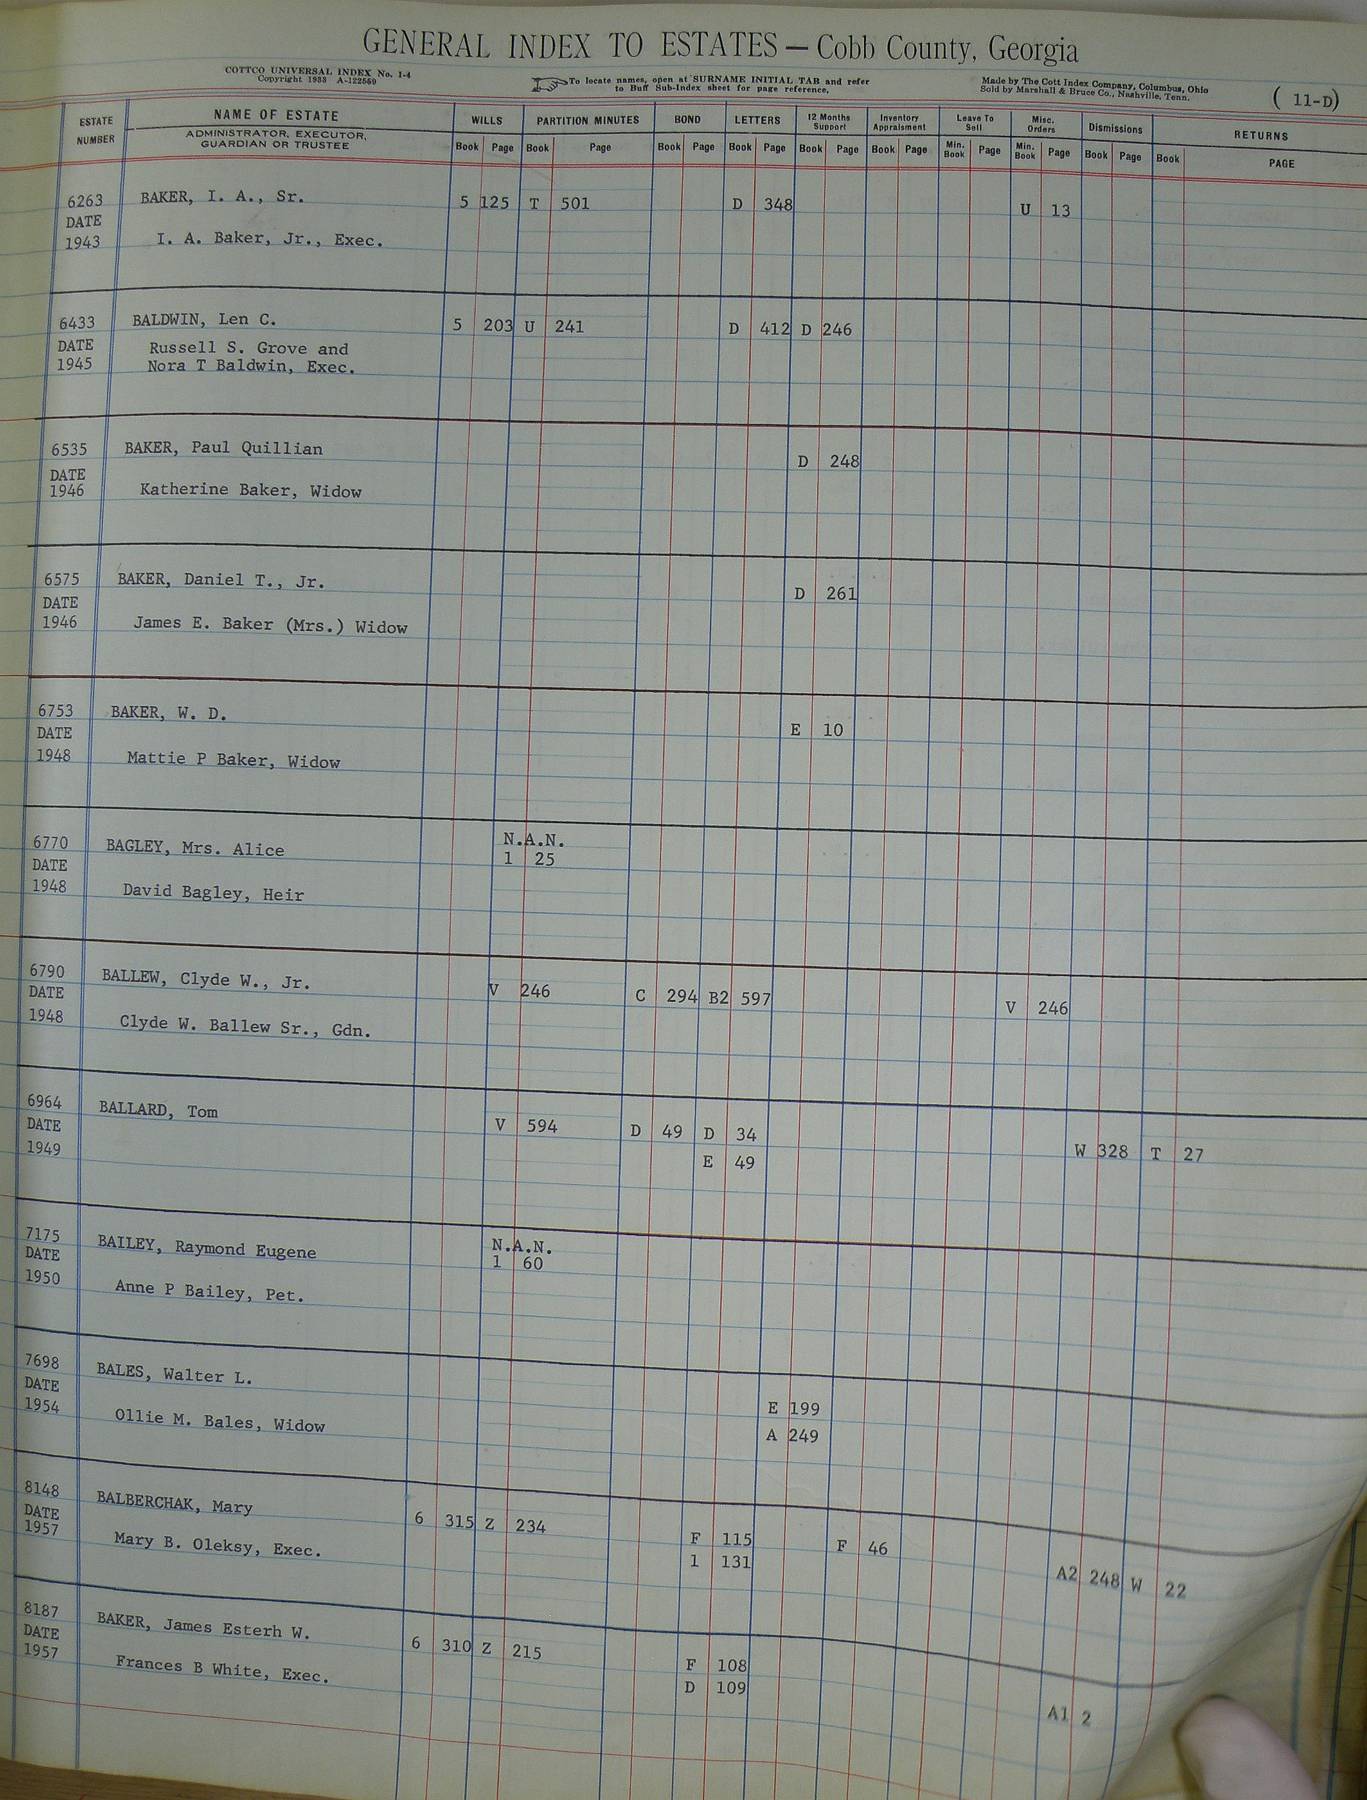 GENERAL INDEX TO ESTATES — Cobb County, Georgia
COTTCO UNIVERSAL INDEX No. 1-4
Copyright 1933 A-122569
To locate names, open at SURNAME INITIAL TAB and refer
to Buff Sub-Index sheet for page reference.
Made by The Cott Index Company, Columbus, Ohio
Sold by Marshall & Bruce Co., Nashville, Tenn.
( 11-D)
ESTATE NUMBER
NAME OF ESTATE
ADMINISTRATOR, EXECUTOR,
GUARDIAN OR TRUSTEE
WILLS PARTITION MINUTES BOND LETTERS 12 Months Support Inventory Appraisment Leave To Sell Misc. Orders Dismissions RETURNS
Book Page Book Page Book Page Book Page Book Page Book Page Min. Book Page Min. Book Page Book Page Book PAGE
6263 BAKER, I. A., Sr. 5 125 T 501 D 348 U 13
DATE
1943 I. A. Baker, Jr., Exec.
6433 BALDWIN, Len C. 5 203 U 241 D 412 D 246
DATE Russell S. Grove and
1945 Nora T Baldwin, Exec.
6535 BAKER, Paul Quillian D 248
DATE
1946 Katherine Baker, Widow
6575 BAKER, Daniel T., Jr. D 261
DATE
1946 James E. Baker (Mrs.) Widow
6753 BAKER, W. D. E 10
DATE
1948 Mattie P Baker, Widow
6770 BAGLEY, Mrs. Alice N.A.N.
DATE 1 25
1948 David Bagley, Heir
6790 BALLEW, Clyde W., Jr. V 246 C 294 B2 597 V 246
DATE
1948 Clyde W. Ballew Sr., Gdn.
6964 BALLARD, Tom V 594 D 49 D 34 W 328 T 27
DATE E 49
1949
7175 BAILEY, Raymond Eugene N.A.N.
DATE 1 60
1950 Anne P Bailey, Pet.
7698 BALES, Walter L. E 199
DATE A 249
1954 Ollie M. Bales, Widow
8148 BALBERCHAK, Mary 6 315 Z 234 F 115 F 46 A2 248 W 22
DATE 1 131
1957 Mary B. Oleksy, Exec.
8187 BAKER, James Esterh W. 6 310 Z 215 F 108 A1 2
DATE D 109
1957 Frances B White, Exec.